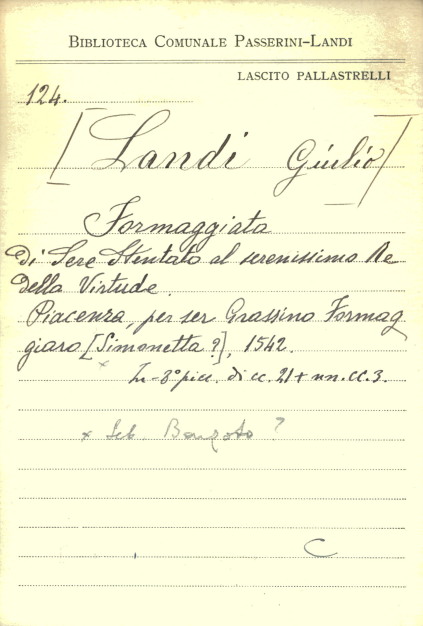 BIBLIOTECA COMUNALE PASSERINI-LANDI
LASCITO PALLASTRELLI
124.
[Landi Giulio]
Formaggiata
Di Sere Stentato al serenissimo Re
della Virtude.
Piacenza, per ser Grassino Formag
giaro [Simonetta ?], 1542.
x In-8° picc. di cc. 21 + nn. cc. 3.
x Seb. ?
C